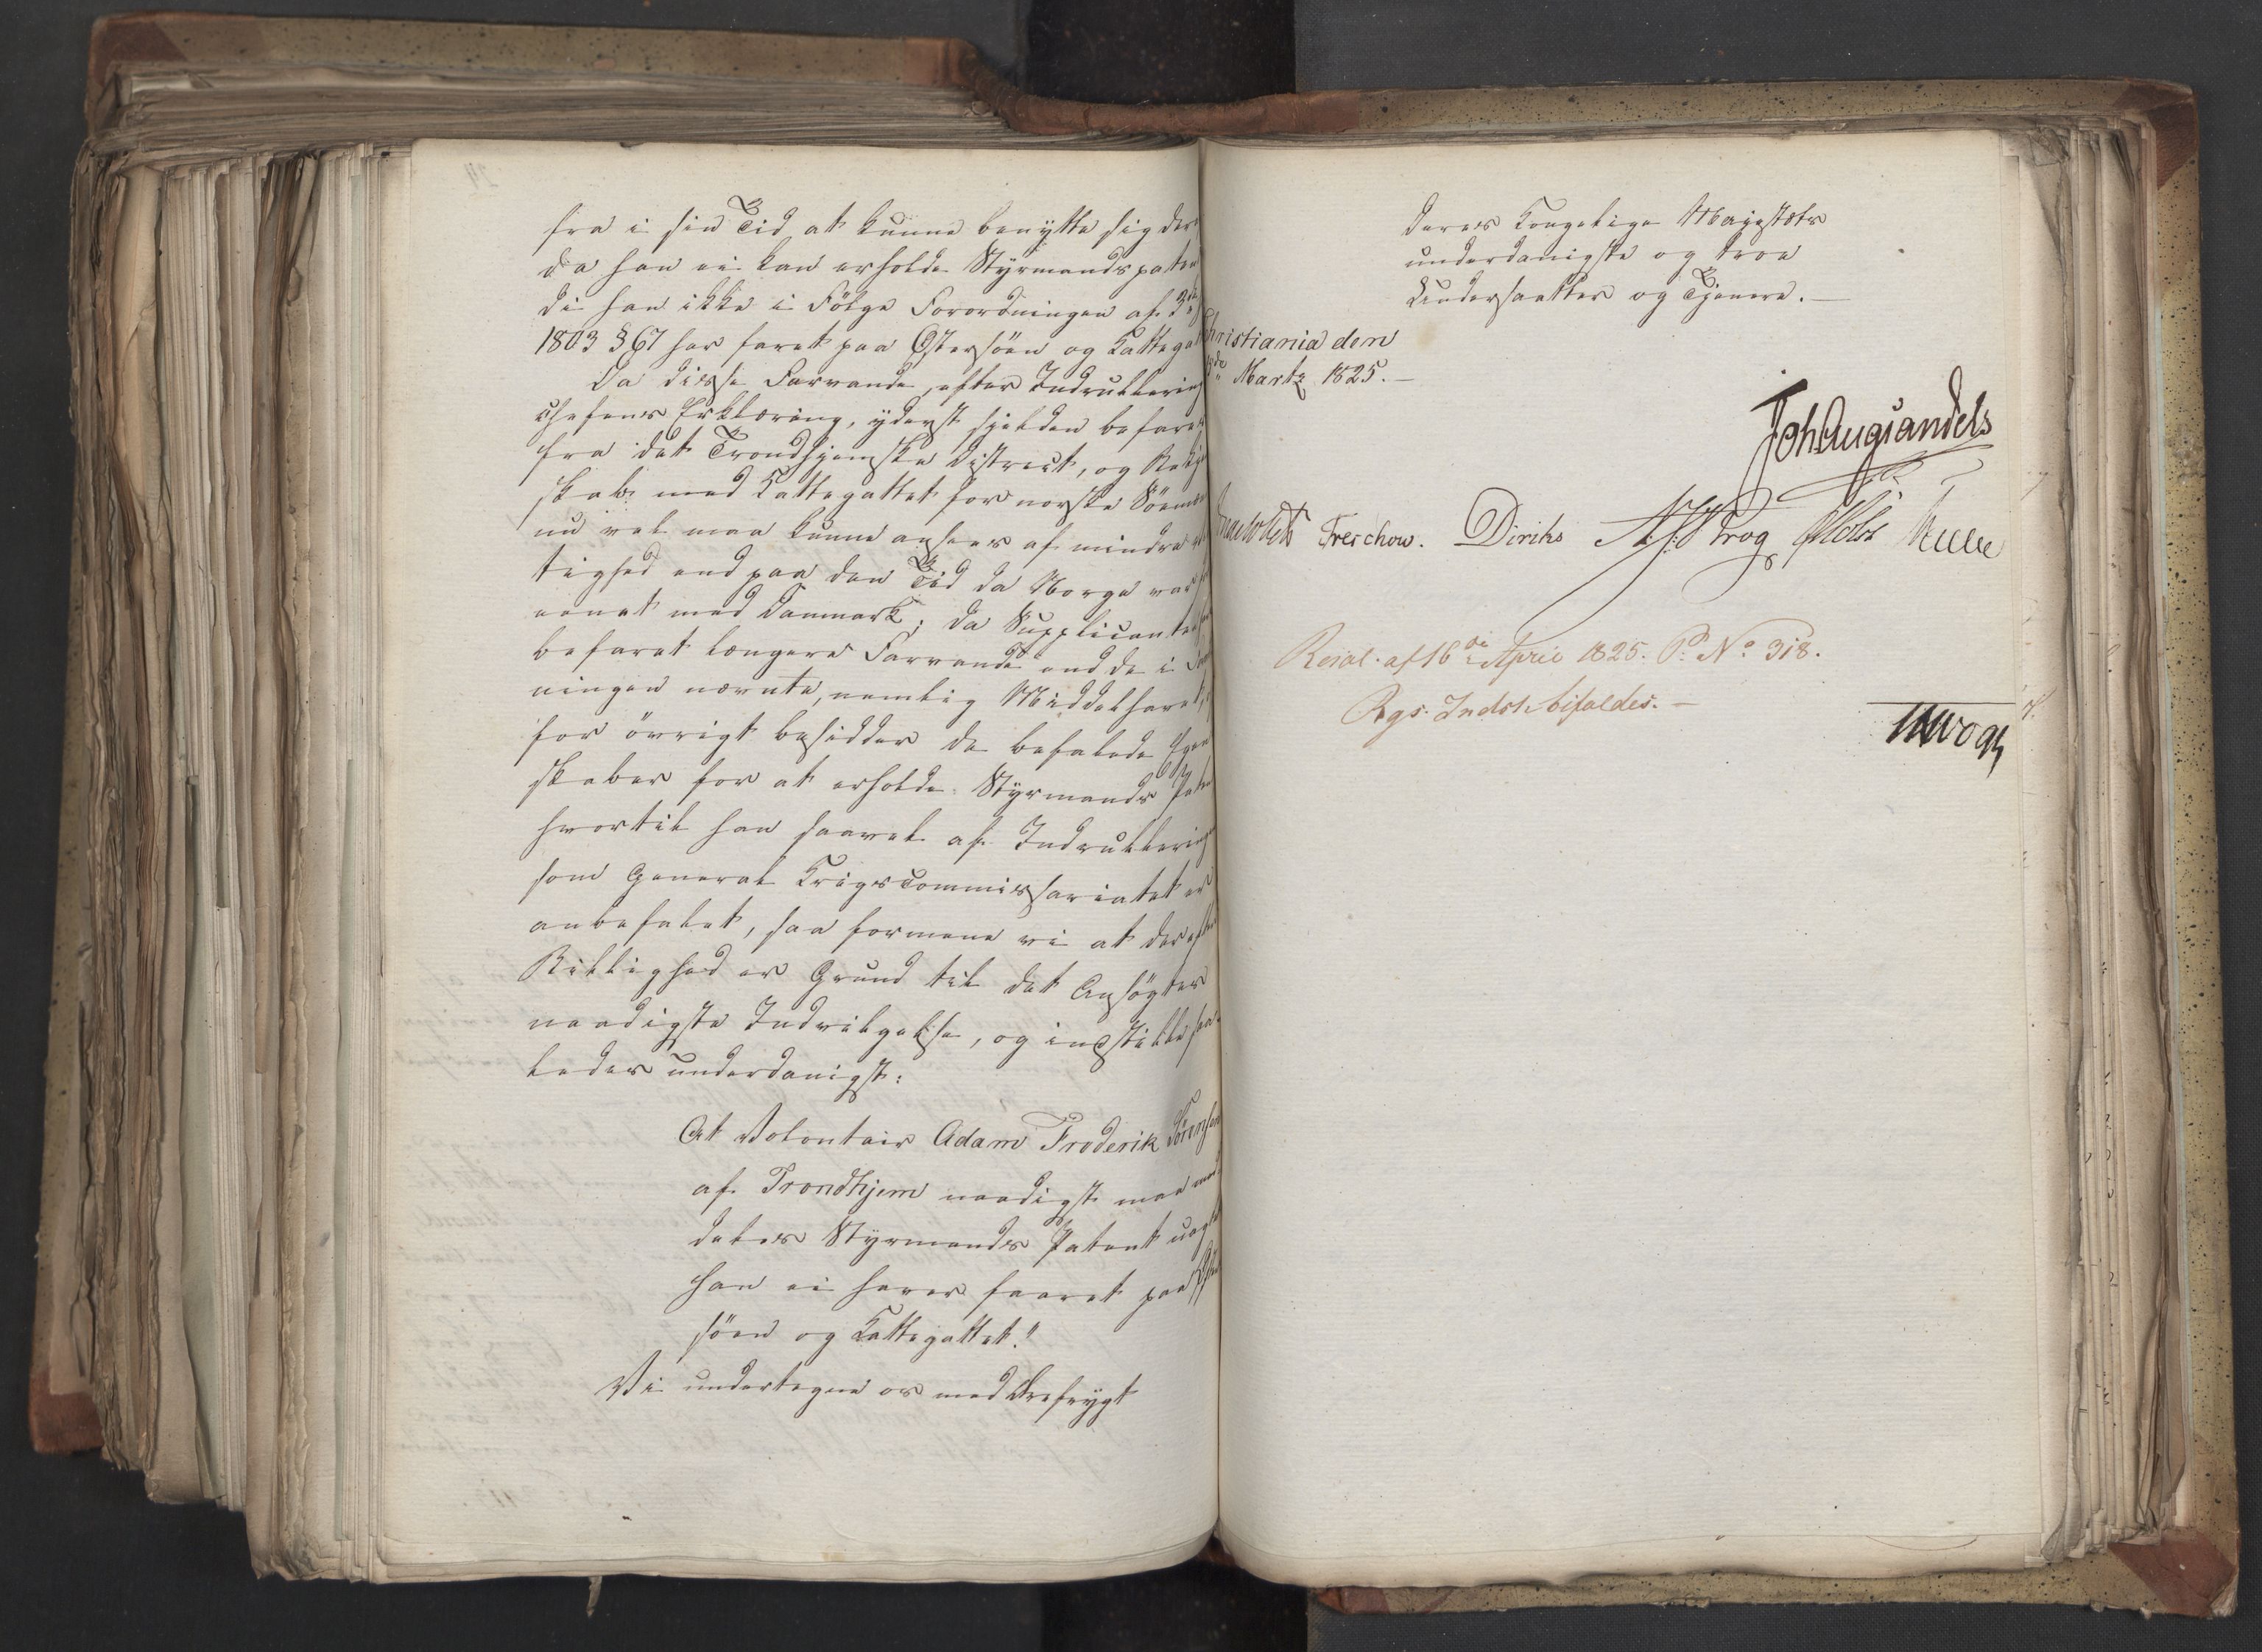 fra i sin Tid at kunne benytte sig der
da han ei kan erholde Styrmandspaten
di han ikke i Følge Forordningen af 3die
1803 § 67 har faret paa Østersøen og Kattegat
Da disse Farvande, efter Indrullering
chefens Erklæring, yderst sjelden befares
fra det Trondhjemske District, og Bekjen
skab med Kattegattet for norske Sømæn
nu vel maa kunne ansees af mindre
tighed end paa den Tid da Norge var
eenet med Danmark; da Supplicanten
befaret længere Farvande end de i For
ningen nævnte, nemlig Middelhavet,
for øvrigt besidder de befalede Egen
skaber for at erholde Styrmands Paten
hvortil han saavel af Indrullering
som General Krigscommissariatet er
anbefalet, saa formene vi at der efter
Billighed er Grund til det Ansøgtes
naadigste Indvilgelse, og indstille saa-
ledes underdanigst:
At Volontair Adam Frederik Sørensen
af Trondhjem naadigst maa med
deles Styrmands Patent uagtet
han ei haver faaret paa Øster
søen og Kattegattet."
Vi undertegne os med Ærefrygt
Deres Kongelige Majestæts
underdanigste og troe
Undersaatter og Tjenere.
Christiania den
Marts 1825.
Joh Aug Sandels
Treschow. Diriks Krog Holst
Resol. af 16de April 1825. P. No 318.
Rgs. Indst. bifaldes.